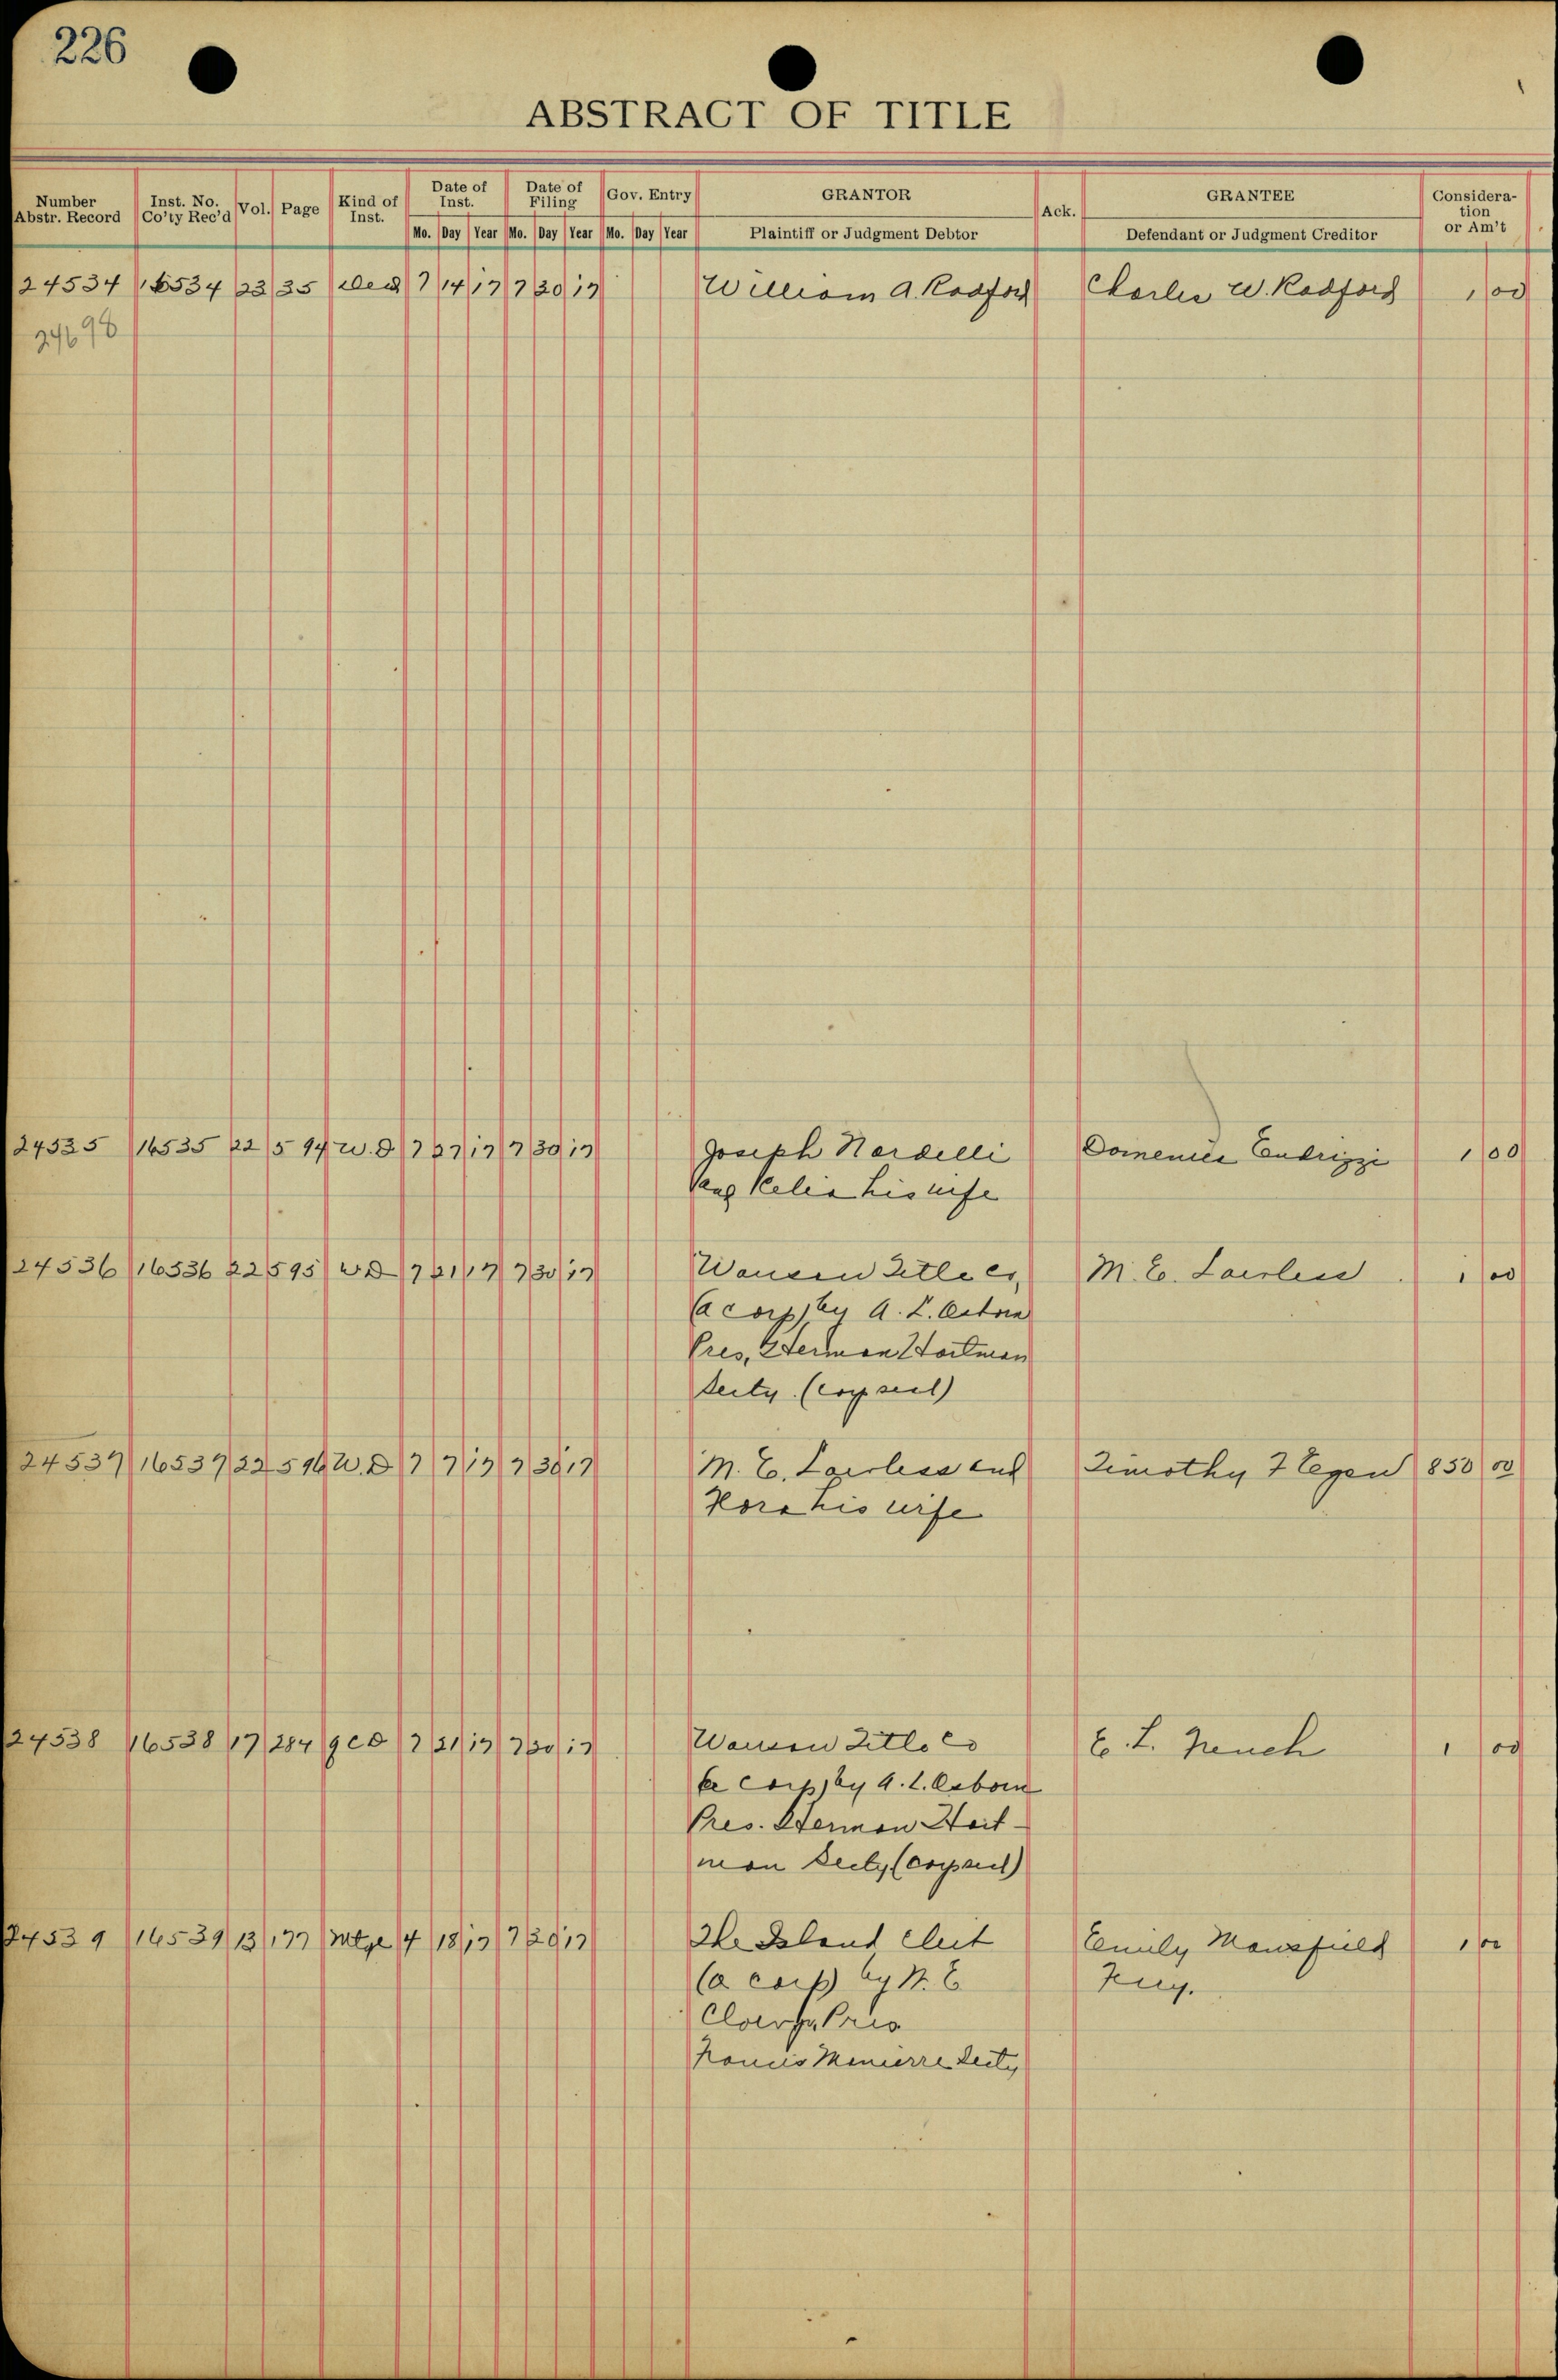 226
ABSTRACT OF TITLE
Number Abstr. Record Inst. No. Co'ty Rec'd Vol. Page Kind of Inst. Date of Inst. Date of Filing Gov. Entry GRANTOR Ack. GRANTEE Consideration or Am't
Mo. Day Year Mo. Day Year Mo. Day Year Plaintiff or Judgment Debtor Defendant or Judgment Creditor
24534 16534 23 35 Deed 7 14 17 7 30 17 William A. Radford Charles W. Radford 1 00
24698
24535 16535 22 594 W.D 7 27 17 7 30 17 Joseph Nardelli Domenica Endrizzi 1 00
his wife
24536 16536 22 595 W D 7 21 17 7 30 17 Wausau Title Co, M. E. Lawless 1 00
(a corp) by A. L.
Pres, Herman Hartman
Secty. (corp seal)
24537 16537 22 596 W.D 7 7 17 7 30 17 M. E. Lawless and Timothy F Egan 850 00
Nora his wife
24538 16538 17 284 QCD 7 21 17 7 30 17 Wausau Title Co E. L. French 1 00
(a corp) by A. L. Osborn
Pres. Herman Hart-
man Secty (corp seal)
24539 16539 13 177 Mtge 4 18 17 7 30 17 The Island Club Emily Mansfield 1 00
(a corp) by N. E
Pres
Francis Secty